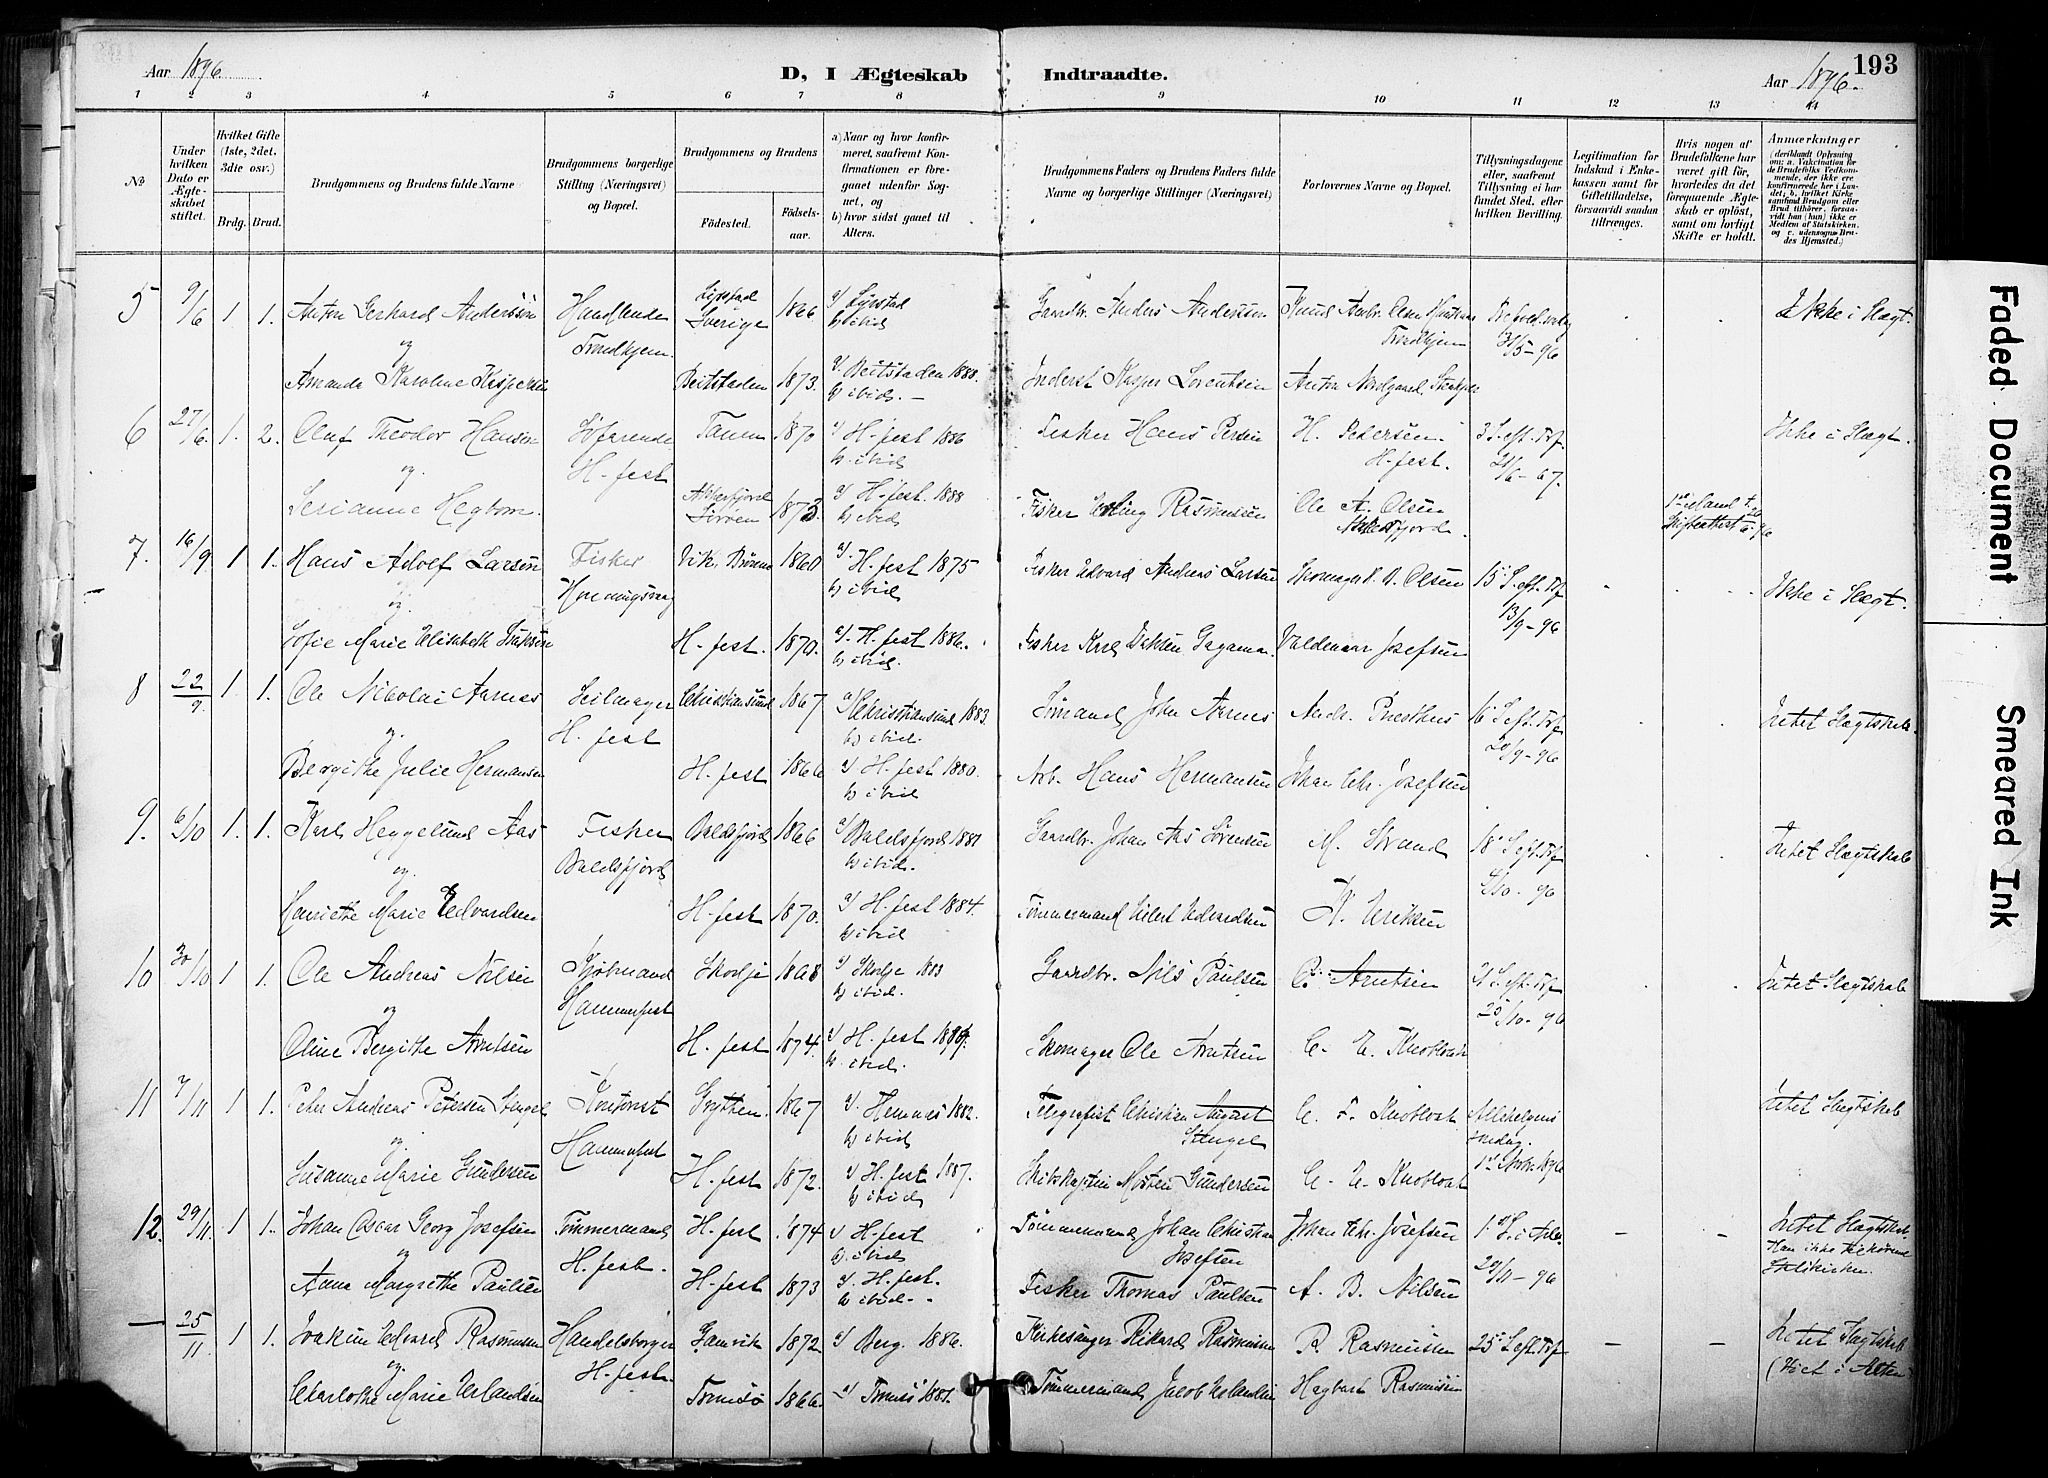 Aar 1896.
D, I Ægteskab Indtraadte.
Aar 1896.
193
1 2 3 4 5 6 7 8 9 10 11 12 13 14
№
Under hvilken Dato er Ægteskabet stiftet.
Hvilket Gifte (1ste, 2det, 3die osv.)
Brdg. Brud.
Brudgommens og Brudens fulde Navne
Brudgommens borgerlige Stilling (Næringsvei) og Bopæl.
Brudgommens og Brudens
Födested. Födselsaar.
a) Naar og hvor konfirmeret, saafremt Konfirmationen er foregaaet udenfor Sognet, og
b) hvor sidst gaaet til Alters.
Brudgommens Faders og Brudens Faders fulde Navne og borgerlige Stillinger (Næringsvei)
Forlovernes Navne og Bopæl.
Tillysningsdagene eller, saafremt Tillysning ei har fundet Sted, efter hvilken Bevilling.
Legitimation for Indskud i Enkekassen samt for Giftetilladelse, forsaavidt saadan tiltrænges.
Hvis nogen af Brudefolkene har været gift för, hvorledes da det foregaaende Ægteskab er oplöst, samt om lovligt Skifte er holdt.
Anmærkninger
(deriblandt Oplysning om: a. Vakcination for de Brudefolks Vedkommende, der ikke ere konfirmerede her i Landet; b. hvilket Kirkesamfund Brudgom eller Brud tilhörer, forsaavidt han (hun) ikke er Medlem af Statskirken, og c. udensogns Brudes Hjemsted.)
5 9/6 1 1. Anton Gerhard Anderssön Handlende Lysstad Sverige 1866 a) Lysstad Gaardbr. Anders Anderssen Knud Ambr. Olsen 31/5-96 Ikke i Slægt.
og Trondhjem. b) ibid Trondhjem
Amanda Karoline Kaspersen Beitstaden 1873. a) Beitstaden 1888. Inderst Kasper Lorentsen Anton Nordgaard Stenkjær
b) ibid. -
6 27/6. 1. 2. Oluf Theodor Hansen Söfarende Tanen 1870 a) H-fest 1886 Fisker Hans Persen H. Pedersen 3 S. eft. Tref. Ikke i Slægt.
og. H-fest b) ibid H-fest. 21/6-67.
Serianne Hegbom. Akkarfjord Sörøen 1873. a) H-fest. 1888 Fisker Erling Rasmussen Ole A. Olsen 1ste Mand †
b) ibid Akkarfjord.
7. 16/9 1 1. Hans Adolf Larsen Fisker Vik, Brönnö 1860 a) H-fest 1875 Fisker Edvard Andreas Larsen Skomager P. A. Olsen 15 S. eft. Tref. Ikke i Slægt.
og Honningsvaag b) ibid 13/9-96
Sofie Marie Elisabeth H-fest. 1870. a) H-fest 1886. Fisker Karl Valdemar Josefsen
b) ibid.
8 22/9. 1. 1. Ole Nikolai Aarnes Seilmager Christiansund 1867 a) Christiansund 1883. Sømand John Aarnes Andr. Presthus 16 S. eft. Tref. Intet Slægtskab
og. H. fest b) ibid. 20/9-96
Bergithe Julie Hermansen H-fest 1866 a) H-fest 1880. Arb. Hans Hermansen Johan Chr. Josefsen
b) ibid
9. 6/10 1. 1. Karl Heggelund Aas Fisker Balsfjord 1866 a) Balsfjord 1881 Gaardbr. Johan Aas Sörensen M. Strand 18 S. eft. Tref. Intet Slægtskab
og. Balsfjord b) ibid. 4/10-96
Henriethe Marie Edvardsen H-fest 1870. a) H-fest 1884. Tømmermand Edvardsen N. Eriksen
b) ibid
10 30/10 1 1. Ole Andreas Nilsen Kjöbmand Skodje 1868 a) Skodje 1883 Gaardbr. Nils Paulsen O. Arntsen 21 S. eft. Tref. Intet Slægtskab
og Hammerfest b) ibid. 25/10-96
Oline Bergithe Arntsen H-fest 1874. a) H-fest 1889. Skomager Ole Arntsen C. E. Knoblock
b) ibid.
11 7/11 1 1. Peter Andreas Petersen Stengel Kontorist Grytten. 1867 a) Hemnæs 1882. Telegrafist Christian August C. F. Knoblock Allehelgens Intet Slægtskab
og Hammerfest b) ibid Stengel söndag.
Susanne Marie Gundersen H-fest 1872. a) H-fest 1887. Skibskaptein Morten Gundersen C. E. Knoblock 1ste Novbr. 1896
b) ibid
12. 29/11 1 1. Johan Oscar Georg Josefsen Tømmermand H-fest 1874 a) H-fest Tømmermand Johan Christian Johan Chr. Josefsen 1. S. i Adv. - - Intet Slægtskab.
og H. fest. b) ibid Josefsen 29/11-96 Han ikke
Anna Margrethe Paulsen H-fest 1873 a) H-fest. Fisker Thomas Paulsen A. B. Nilsen Statskirken.
b) ibid.
- 25/11 1 1. Joakim Edvard Rasmussen Handelsborger Gamvik 1872 a) Berg. 1886. Kirkesanger Rikard Rasmussen R. Rasmussen 25 S. eft. Tref. - - Intet Slægtskab
og. H-fest. (Viet i Alten)
Charlothe Marie Erlandsen Tromsø 1866. a) Tromsö 1881. Tømmermand Jacob Erlandsen Hagbart Rasmussen
Faded Document
Smeared Ink